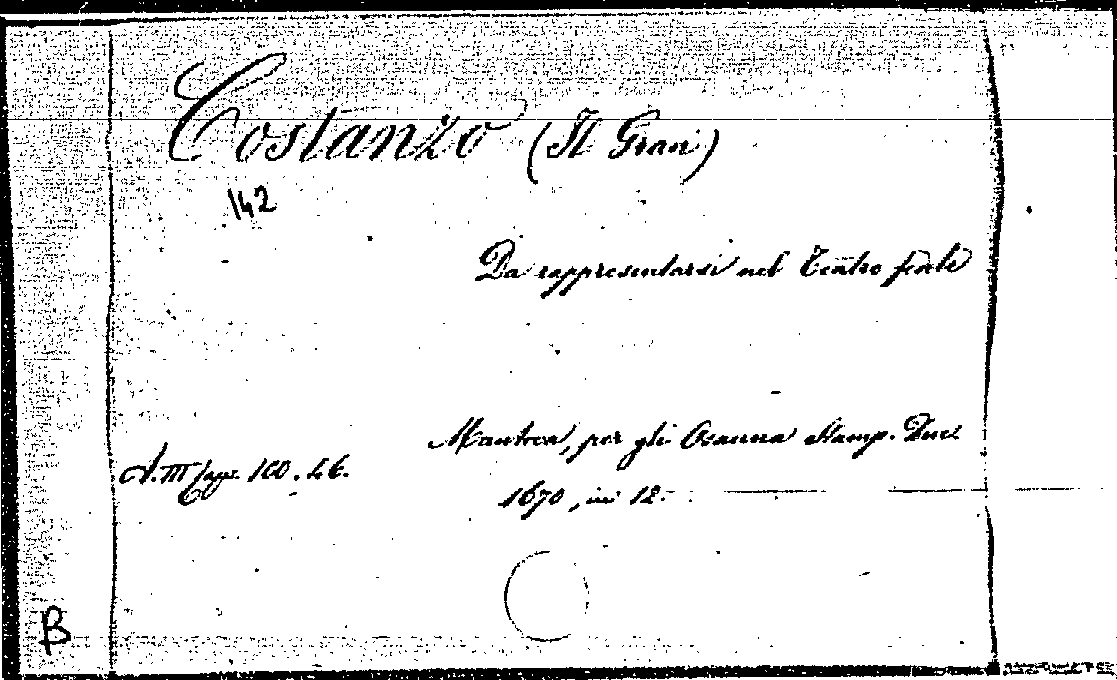 Costanzo (Il Gran)
142
Da rappresentarsi nel Teatro
Mantova, per gli Osanna Stamp. Duc.
A. III 160. 46.
1670, in 12.
B